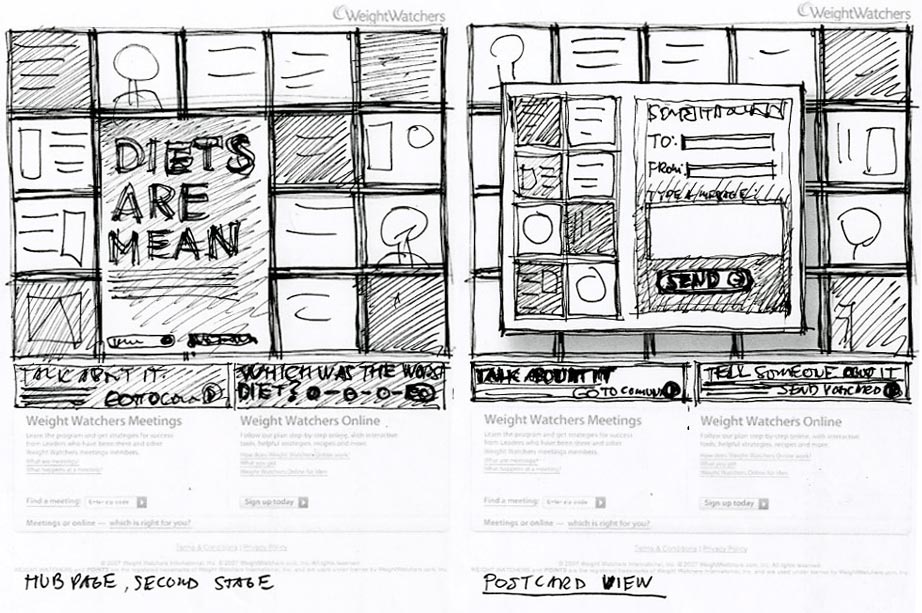 WeightWatchers
DIETS
ARE
MEAN
TALK ABOUT IT
GO TO
WHICH WAS THE WORST
DIET?
Weight Watchers Meetings
Learn the program and get strategies for success
from Leaders who have been there and other
Weight Watchers meetings members.
What are meetings?
What happens at a meeting?
Find a meeting: Enter zip code
Weight Watchers Online
Follow our plan step-by-step online, with interactive
tools, helpful strategies, recipes and more.
How does Weight Watchers Online work?
What you get
Weight Watchers Online for Men
Sign up today
Meetings or online — which is right for you?
Terms & Conditions | Privacy Policy
© 2007 Weight Watchers International, Inc. © 2007 WeightWatchers.com, Inc. All rights reserved.
WEIGHT WATCHERS and POINTS are the registered trademarks of Weight Watchers International, Inc. and are used under license by WeightWatchers.com, Inc.
HUB PAGE, SECOND STAGE
WeightWatchers
TO:
FROM:
TYPE A MESSAGE
SEND
TALK ABOUT IT
GO TO
TELL SOMEONE ABOUT IT
SEND POSTCARD
Weight Watchers Meetings
Learn the program and get strategies for success
from Leaders who have been there and other
Weight Watchers meetings members.
What are meetings?
What happens at a meeting?
Find a meeting: Enter zip code
Weight Watchers Online
Follow our plan step-by-step online, with interactive
tools, helpful strategies, recipes and more.
How does Weight Watchers Online work?
What you get
Weight Watchers Online for Men
Sign up today
Meetings or online — which is right for you?
Terms & Conditions | Privacy Policy
© 2007 Weight Watchers International, Inc. © 2007 WeightWatchers.com, Inc. All rights reserved.
WEIGHT WATCHERS and POINTS are the registered trademarks of Weight Watchers International, Inc. and are used under license by WeightWatchers.com, Inc.
POSTCARD VIEW